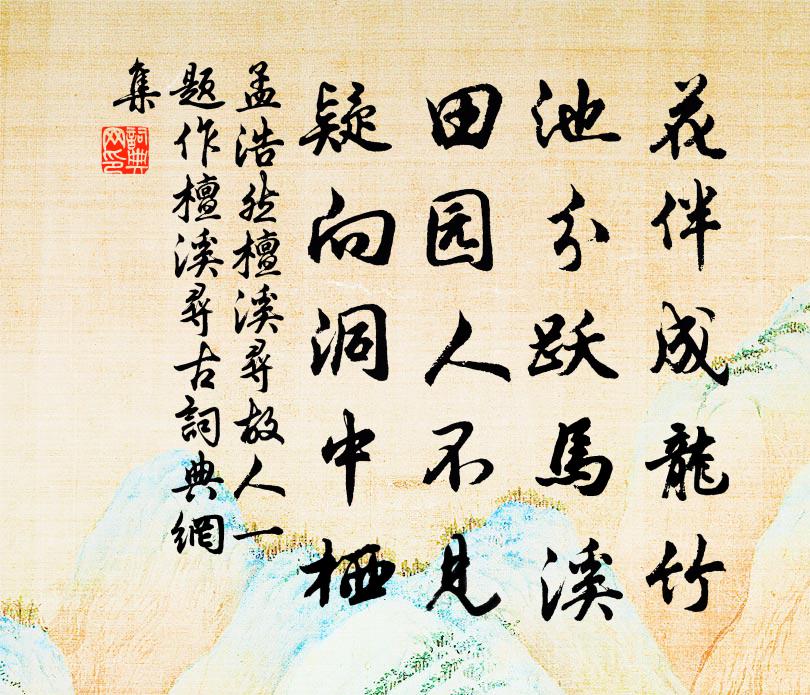 花伴成龍竹
池分跃馬溪
田园人不見
疑向洞中栖
孟浩然檀溪尋故人一
题作檀溪尋古詞典網
集
詞典網印